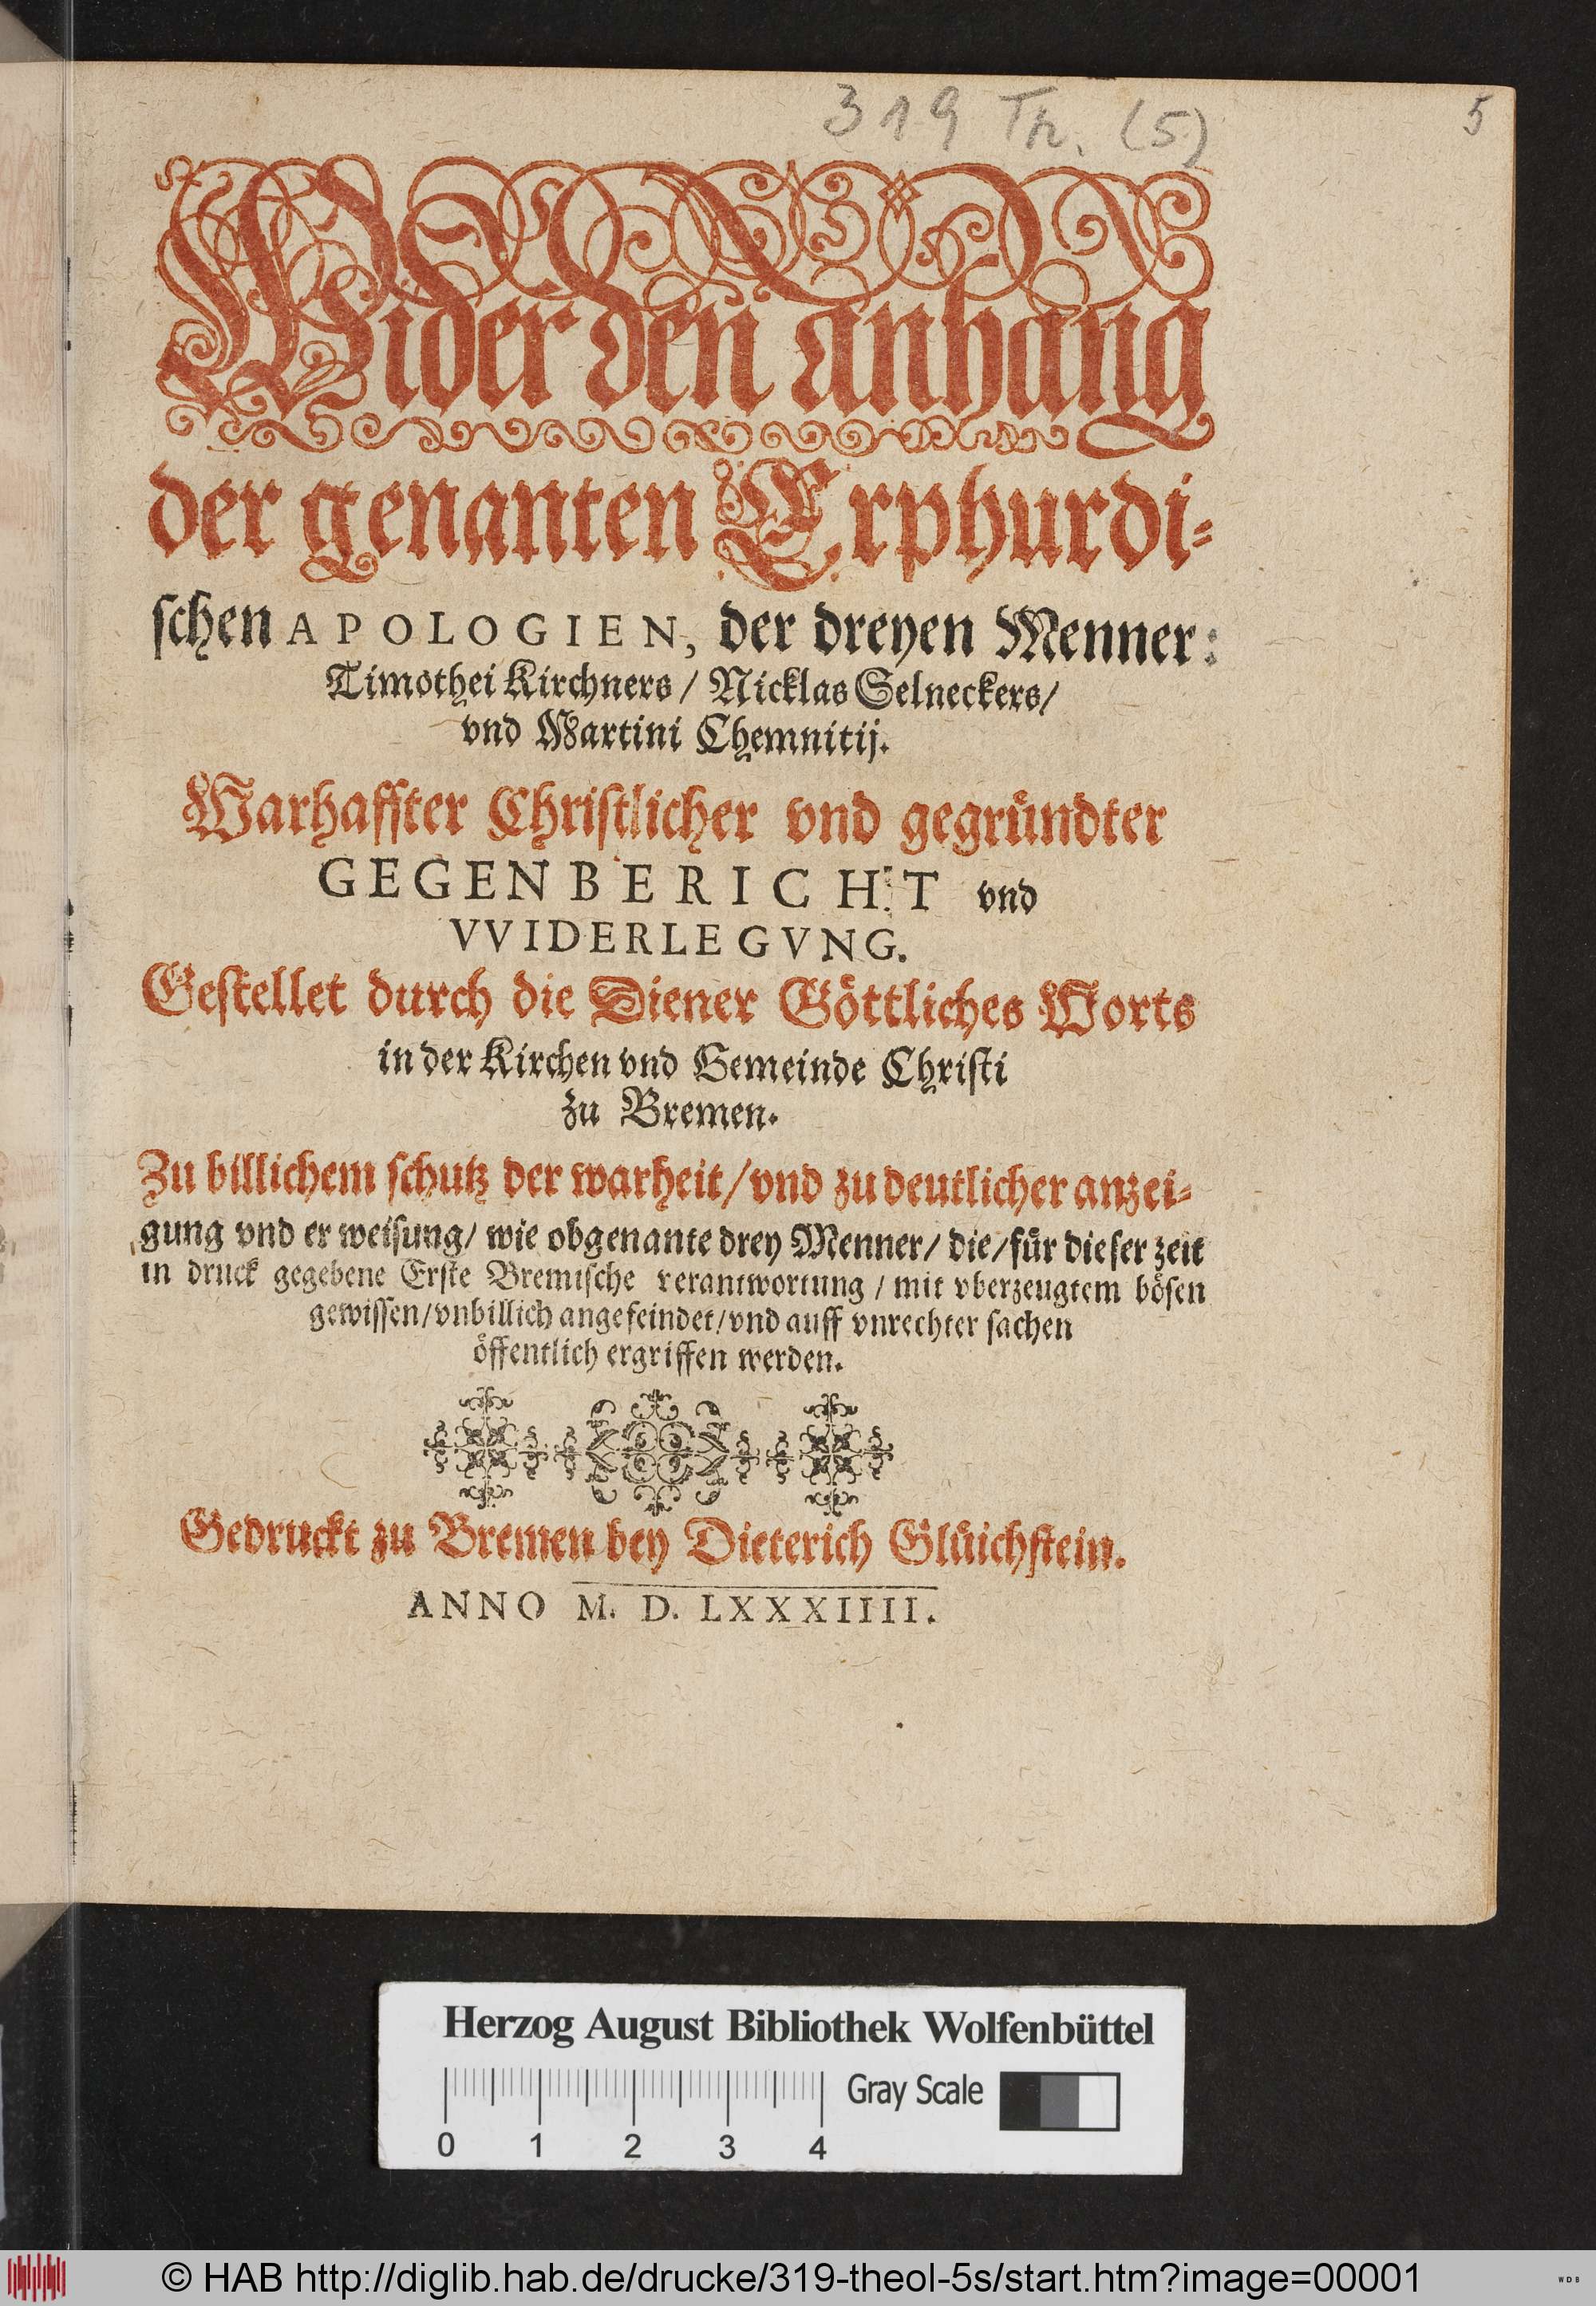 319 Th. (5)
5
Wider den anhang
der genanten Erphurdi-
schen APOLOGIEN, der dreyen Menner:
Timothei Kirchners / Nicklas Selneckers /
vnd Martini Chemnitij.
Warhaffter Christlicher vnd gegründter
GEGENBERICHT vnd
VVIDERLEGVNG.
Gestellet durch die Diener Göttliches Worts
in der Kirchen vnd Gemeinde Christi
zu Bremen.
Zu billichem schutz der warheit / vnd zu deutlicher anzei-
gung vnd erweisung / wie obgenante drey Menner / die / für dieser zeit
in druck gegebene Erste Bremische verantwortung / mit vberzeugtem bösen
gewissen / vnbillich angefeindet / vnd auff vnrechter sachen
öffentlich ergriffen werden.
Gedruckt zu Bremen bey Dieterich Glüichstein.
ANNO M. D. LXXXIIII.
Herzog August Bibliothek Wolfenbüttel
Gray Scale
0 1 2 3 4
© HAB http://diglib.hab.de/drucke/319-theol-5s/start.htm?image=00001
WDB